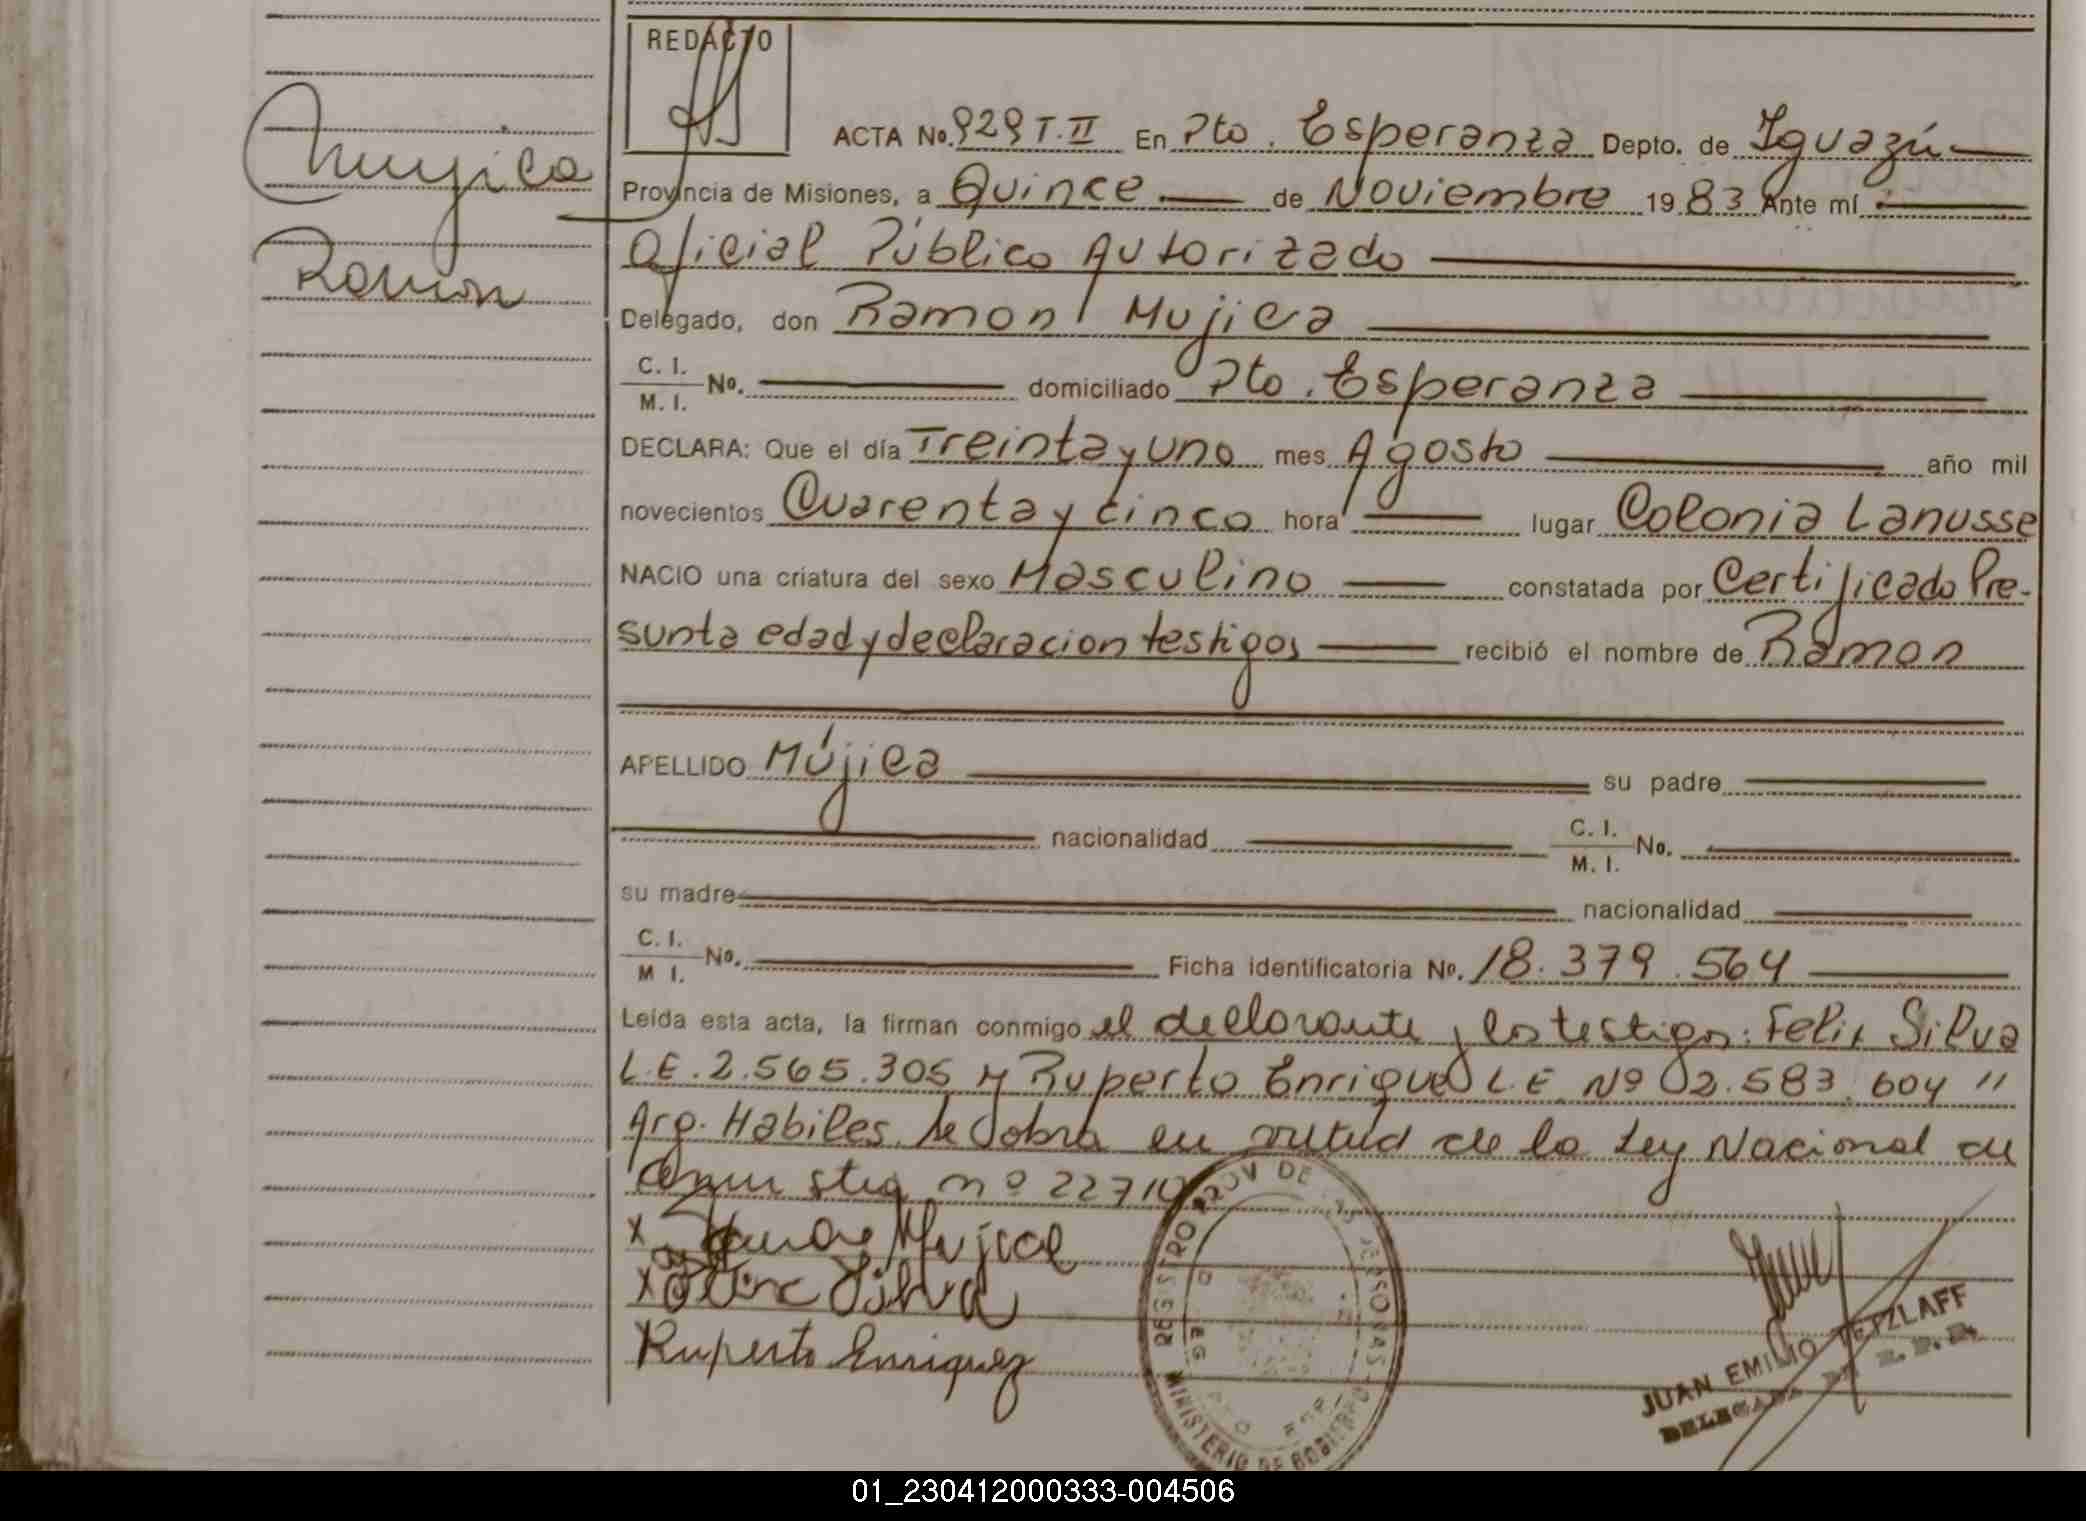 REDACTO
Mujica
Ramon
ACTA No. 929 T. II En Pto. Esperanza Depto. de Iguazú
Provincia de Misiones, a Quince de Noviembre 1983 Ante mí
Oficial Público Autorizado
Delegado, don Ramon Mujica
C. I.
M. I. No. domiciliado Pto. Esperanza
DECLARA: Que el día Treinta y uno mes Agosto año mil
novecientos Cuarenta y cinco hora lugar Colonia Lanusse
NACIO una criatura del sexo Masculino constatada por Certificado Pre-
sunta edad y declaracion testigos recibió el nombre de Ramon
APELLIDO Mújica su padre
nacionalidad C. I.
M. I. No.
su madre nacionalidad
C. I.
M I. No. Ficha identificatoria No. 18.379.564
Leida esta acta, la firman conmigo el declarante y los testigos: Felix Silva
L.E. 2.565.305 y Ruperto Enrique L.E. Nº 2.583.604 "
Arg. Habiles. Se labra en virtud de la Ley Nacional de
Amnistia nº 22710
x Mujica
x Felix Silva
Ruperto Enriquez
REGISTRO PROV DE LAS PERSONAS
MINISTERIO DE GOBIERNO
JUAN EMILIO TETZLAFF
DELEGADO
01_230412000333-004506